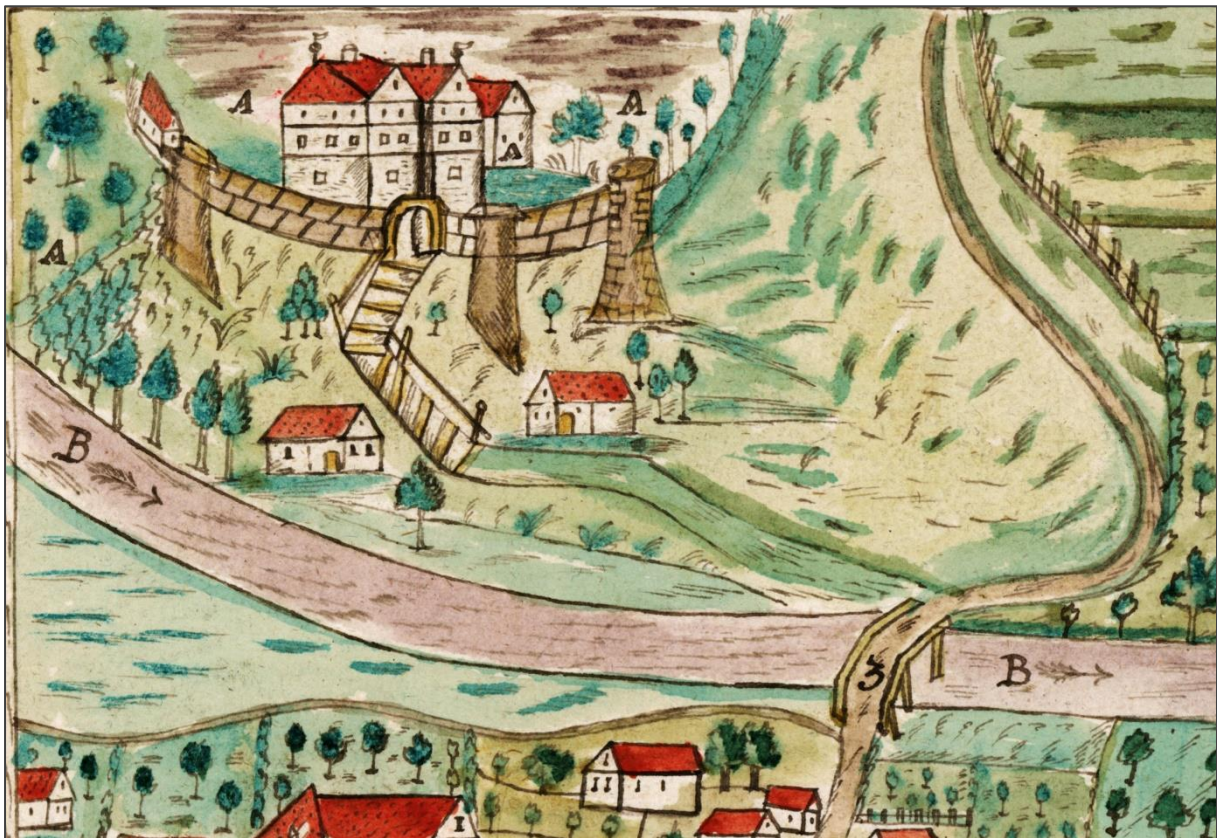 A
A
A
A
B
3
B
I